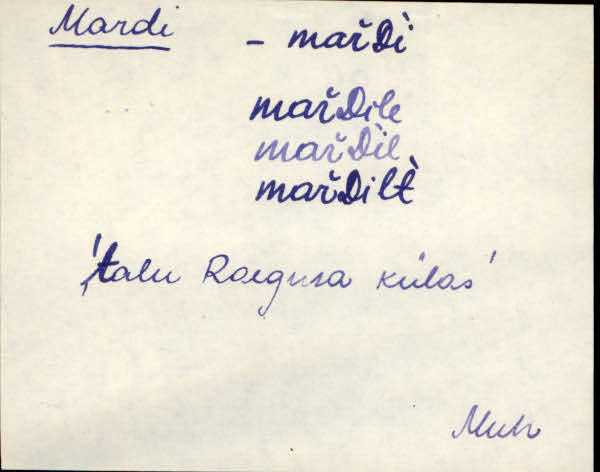 Mardi - mařDì
mařDile
mařDìl
mařDilt̀
'talu Raegma külas'
Muh